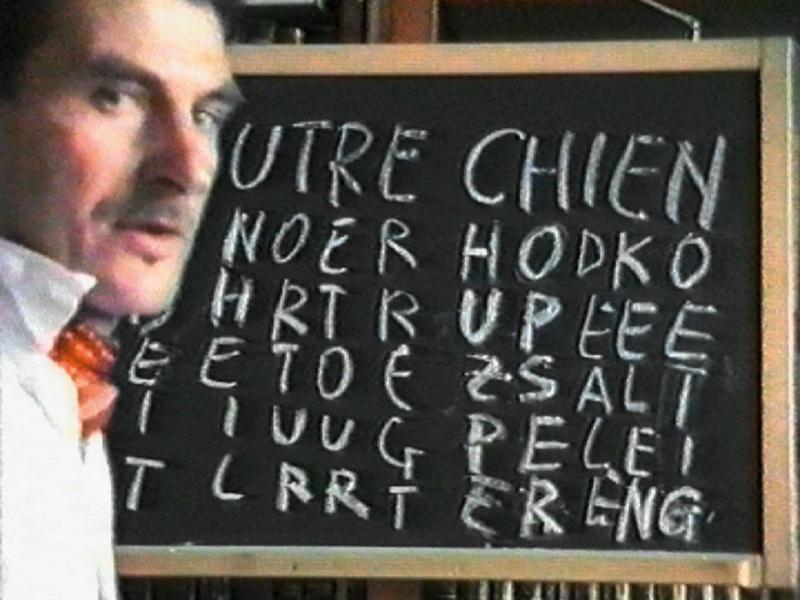 UTRE CHIEN
NOER HODKO
HRTR UPEEE
E ETOE ZSALT
I IUUG PELEI
T LRRT ERENG